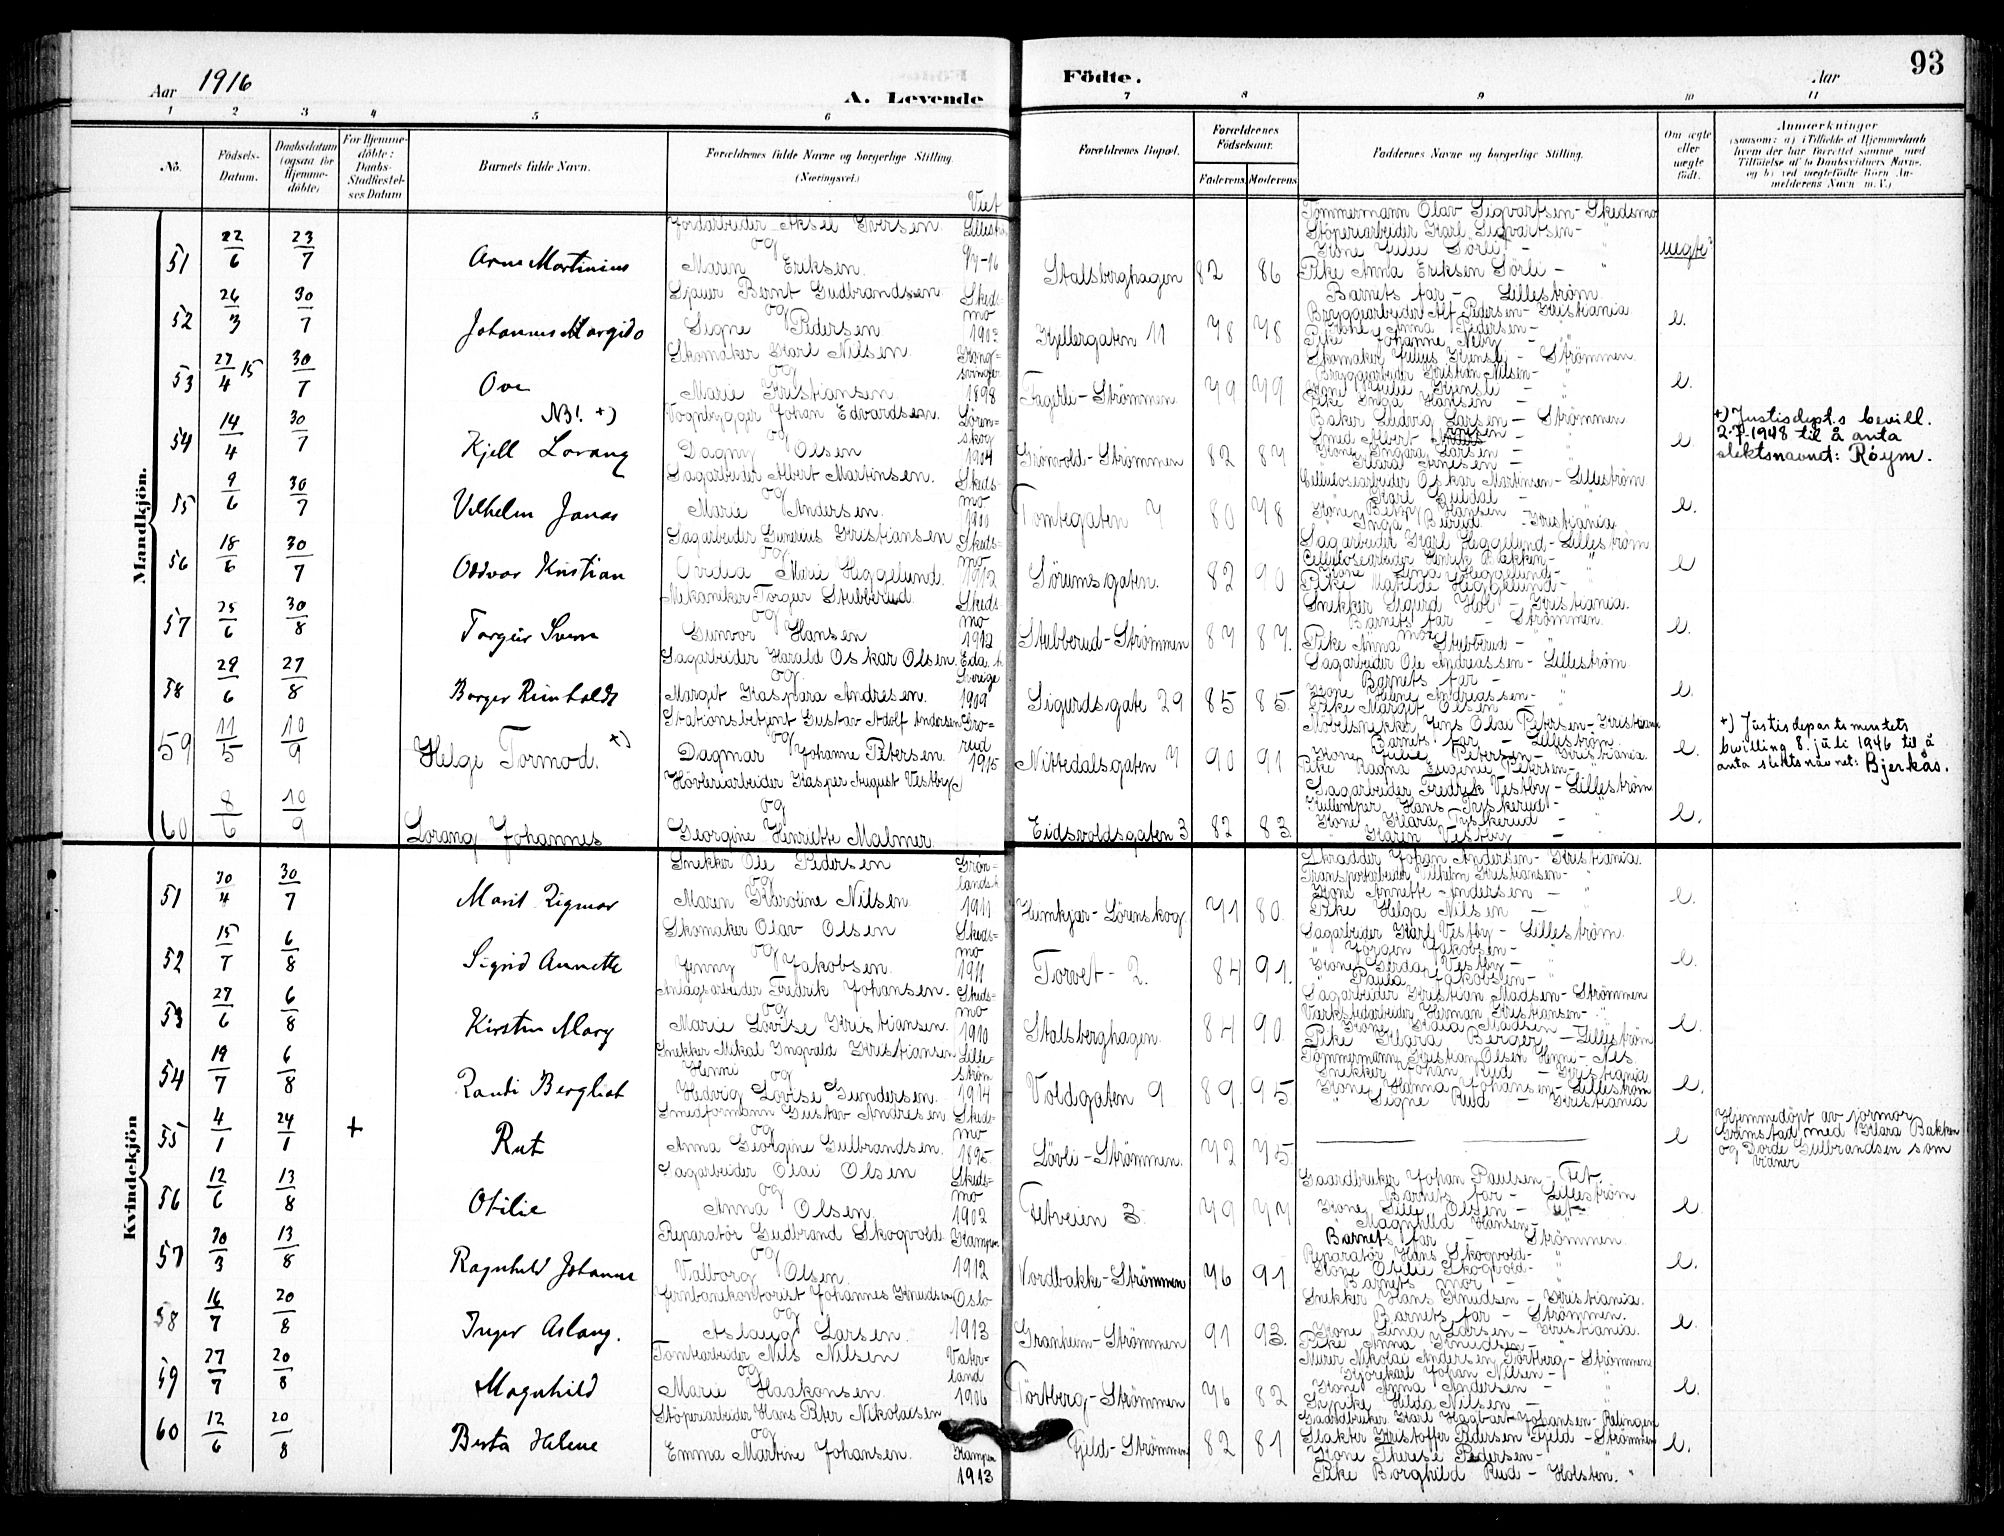 93
Aar 1916
A. Levende
Födte.
Aar
1 2 3 4 5 6 7 8 9 10 11
No.
Födsels-Datum.
Daabsdatum (ogsaa for Hjemme-döbte)
For Hjemme-döbte: Daabs-Stadfæstel-ses Datum
Barnets fulde Navn.
Forældrenes fulde Navne og borgerlige Stilling.
(Næringsvei.)
Viet
Forældrenes Bopæl.
Forældrenes Födselsaar.
Faderens Moderens
Faddernes Navne og borgerlige Stilling.
Om ægte eller uægte födt.
Anmærkninger
(saasom: a) i Tilfælde af Hjemmedaab hvem der har forrettet samme med Tilföielse af to Daabsvidners Navne, og b) ved uægtefödte Börn An-melderens Navn m. V.)
Mandkjön.
51 22/6 23/7 Arne Martinius
Jordarbeider Aksel Iversen
og
Maren Eriksen.
Stalsberghagen 82 86
Tömmermann Olav Sigvartsen - Skedsmo
Stöperiarbeider Karl Sigvartsen - "
Pike Anna Eriksen Sörli - "
uegte
52 26/3 30/7 Johannes Margido
Bernt Gudbrandsen
og
Signe Pedersen
Skeds-mo 1903
Kjellergaten 11 78 78
Barnets far - Lilleström
Bryggearbeider Alf Pedersen - Kristiania
Kone Anna Pedersen - "
Pike Johanne Neby - "
e.
53 27/4 15 30/7 Ove
Skomaker Karl Nilsen.
og
Marie Kristiansen
Kong-svinger 1898
Fagerli - Strömmen 79 79
Skomaker Julius - Strömmen
Bryggearbeider Kristian Nilsen - "
Pike Inga Hansen - "
e.
54 14/4 30/7 NB! +)
Kjell Lorang
Vognbygger Johan Edvardsen.
og
Dagny Olsen
Lören-skog 1904
Grönvold - Strömmen 82 84
Baker Ludvig Larsen - Strömmen
Smed Albert
Kone Ingara Larsen - "
e
+) Justisdept.s bevill.
2-7-1948 til å anta
slektsnavnet: Röym.
55 9/6 30/7 Vilhelm Jonas
Sagarbeider Albert Martinsen.
og
Marie Andersen.
Skeds-mo 1900
Tomtegaten 7 80 78
Cellulosearbeider Oskar Martinsen - Lilleström
Kone Betzy Hansen
" Inga Burud - Kristiania
e.
56 18/6 30/7 Oddvar Kristian
Sagarbeider Gunerius Kristiansen
og
Ovidia Marie Heggelund.
Skeds-mo 1912
Sörumsgaten. 82 90
Sagarbeider Karl Heggelund - Lilleström
Cellulosearbeider Henrik Bakken - "
Pike Matilde Heggelund - "
e
57 25/6 30/8 Torgeir Svenn
Mekaniker Torger Stubberud.
og
Gunvor Hansen
Skeds mo 1912
Stubberud - Strömmen 87 87.
Snekker Sigurd Hol - Kristiania.
Barnets far - Strömmen.
" mor "
Pike Anna Stubberud - "
e.
58 29/6 27/8 Borger Reinholdt
Sagarbeider Harald Oskar Olsen.
og
Margit Kaspara Andresen.
Eda. Sverige 1909
Sigurdsgate 29 85 85.
Sagarbeider Ole Andreassen - Lilleström
Barnets far - "
Kone Helene Andreassen - "
Pike Margit Olsen - "
e.
59 11/5 10/9 Helge Tormod. +)
Stationsbetjent Gustav Adolf Andersen
og
Dagmar Johanne Petersen.
Gro-rud 1915
Nittedalsgaten 7 90 91
Möbelsnekker Jens Olai Petersen - Kristiania
Barnets far - Lilleström.
Kone Julie Petersen - Kristiania.
Pike Ragna Eugenie Petersen - "
e.
+) Justisdepartementets
bevilling 8. juli 1946 til å
anta slektsnavnet: Bjerkås.
60 8/6 10/9 Lorang Johannes
Höveriarbeider Kasper August Vestby
og
Georgine Henriette Malmer.
Eidsvoldsgaten 3 82 83.
Sagarbeider Fredrik Vestby - Lilleström
Hans Tyskerud - "
Kone Klara Tyskerud - "
" Karen Vestby - "
e.
Kvindekjön
51 30/4 30/7 Marit Rigmor
Snekker Ole Pedersen
og
Maren Karoline Nilsen.
Grön-lands k 1911
Humkjær - Lörenskog. 71 80.
Skrædder Johan Andersen - Kristiania.
Transportarbeider Vilhelm Kristiansen - "
Kone Annette Andersen - "
Pike Helga Nilsen - "
e.
52 15/7 6/8 Sigrid Annette
Skomaker Olav Olsen
og
Jenny Jakobsen.
Skeds-mo 1911
Torvet - 2. 84 91.
Sagarbeider Karl Vestby - Lilleström.
" Jörgen Jakobsen - "
Kone Gerda Vestby - "
" Paula Jakobsen - "
e.
53 27/6 6/8 Kirsten Mary
Anlægsarbeider Fredrik Johansen.
og
Marie Lovise Kristiansen.
Skeds-mo 1910
Stalsberghagen. 84 90.
Sagarbeider Kristian Madsen - Strömmen
Værkstedarbeider Herman Kristiansen - "
Kone Kaia Madsen - "
Pike Klara Berger - Lilleström
e.
54 19/7 6/8 Randi Bergliot
Snekker Mikal Ingvald Kristiansen
Henni og
Hedvig Lovise Gundersen.
Lille-ström 1914
Voldgaten 9 89. 95.
Tömmermann Kristian Olsen Henni - Nes.
Snekker Johan Rud - Kristiania
Kone Hanna Johansen - Lilleström
" Signe Rud - Kristiania
e.
55 4/1 24/1 + Rut
Smedformann Gustav Andresen
og
Anna Georgine Gulbrandsen.
Skeds-mo 1895.
Lövli - Strömmen. 72 75.
e
Hjemmedöpt av jormor
Grimstad med Klara Bakken
og Dorde Gulbrandsen som
vidner
56 12/6 13/8 Otilie
Sagarbeider Olai Olsen
og
Anna Olsen
Skeds-mo 1902
Fetveien 3. 79 77
Gaardbruker Johan Paulsen - Fet.
Barnets far - Lilleström
Kone Lilly Olsen - Fet
" Magnhild Hansen - "
e.
57 30/3 13/8 Ragnhild Johanne
Reparatör Gudbrand Skogvold
og
Valborg Olsen.
Kampen 1912
Nordbakke - Strömmen 76 91.
Barnets far - Strömmen.
Reparatör Hans Skogvold - "
Kone Otilie Skogvold - "
Barnets mor - "
e.
58 16/7 20/8 Inger Aslaug.
Jernbanekontorist Johannes Knudsen
og
Aslaug Larsen.
Oslo 1913
Granheim - Strömmen 91 93.
Snekker Hans Knudsen - Kristiania.
Barnets far - Strömmen.
Kone Lina Larsen - Kristiania.
Pike Anna Knudsen - "
e.
59 27/7 20/8 Magnhild
Tomtearbeider Nils Nilsen
og
Marie Haakonsen.
Vater-land 1906
Törtberg - Strömmen 76 82
Murer Nikolai Andersen Törtberg - Strömmen
Kjörekarl Johan Nilsen - "
Kone Anna Andersen - "
Hilda Nilsen - "
e.
60 12/6 20/8 Berta Helene
Stöperiarbeider Hans Peter Nikolaisen
og
Emma Martine Johansen.
Kampen 1913
Fjeld - Strömmen 82 81
Gaardbruker Karl Hagbart Johansen - Rælingen
Slakter Kristoffer Pedersen Fjeld - Strömmen
Kone Therese Pedersen - "
Pike Borghild Rud - Holsten. "
e.